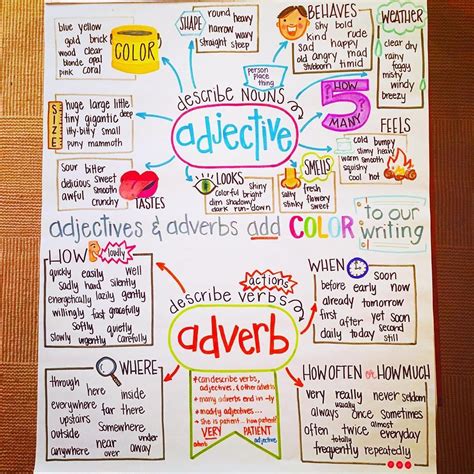 blue yellow
gold brick
wood clear
blonde opal
pink coral
COLOR
SHAPE
round heavy
narrow wavy
straight steep
BEHAVES
shy bold
kind rude
sad happy
old angry mad
stubborn timid
WEATHER
clear dry
rainy
foggy
misty
windy
breezy
person
place
thing
describe nouns
adjective
HOW
5
MANY
SIZE
huge large little
tiny gigantic deep
itty-bitty small
puny mammoth
FEELS
cold bumpy
slimy heavy
warm smooth
squishy
cozy hot
TASTES
sour bitter
delicious sweet
awful smooth
crunchy
LOOKS
shiny
colorful bright
dim shadowy
dark run-down
SMELLS
salty fresh
stinky flowery
sweet
adjectives & adverbs add COLOR to our writing
HOW
loudly
quickly easily well
sadly hard silently
energetically lazily gently
willingly fast gracefully
softly quietly
Slowly urgently carefully
actions
describe verbs
adverb
WHEN
soon
before early now
already tomorrow
first after yet soon
daily today second
still
WHERE
through here inside
everywhere far there
upstairs somewhere
outside under
near over away
• can describe verbs,
adjectives, & other adverbs
• many adverbs end in -ly
• modify adjectives...
• she is patient... how patient?
VERY PATIENT
adverb adjective
HOW OFTEN or HOW MUCH
very really never seldom
always once sometimes
often twice almost usually
totally everyday
frequently repeatedly